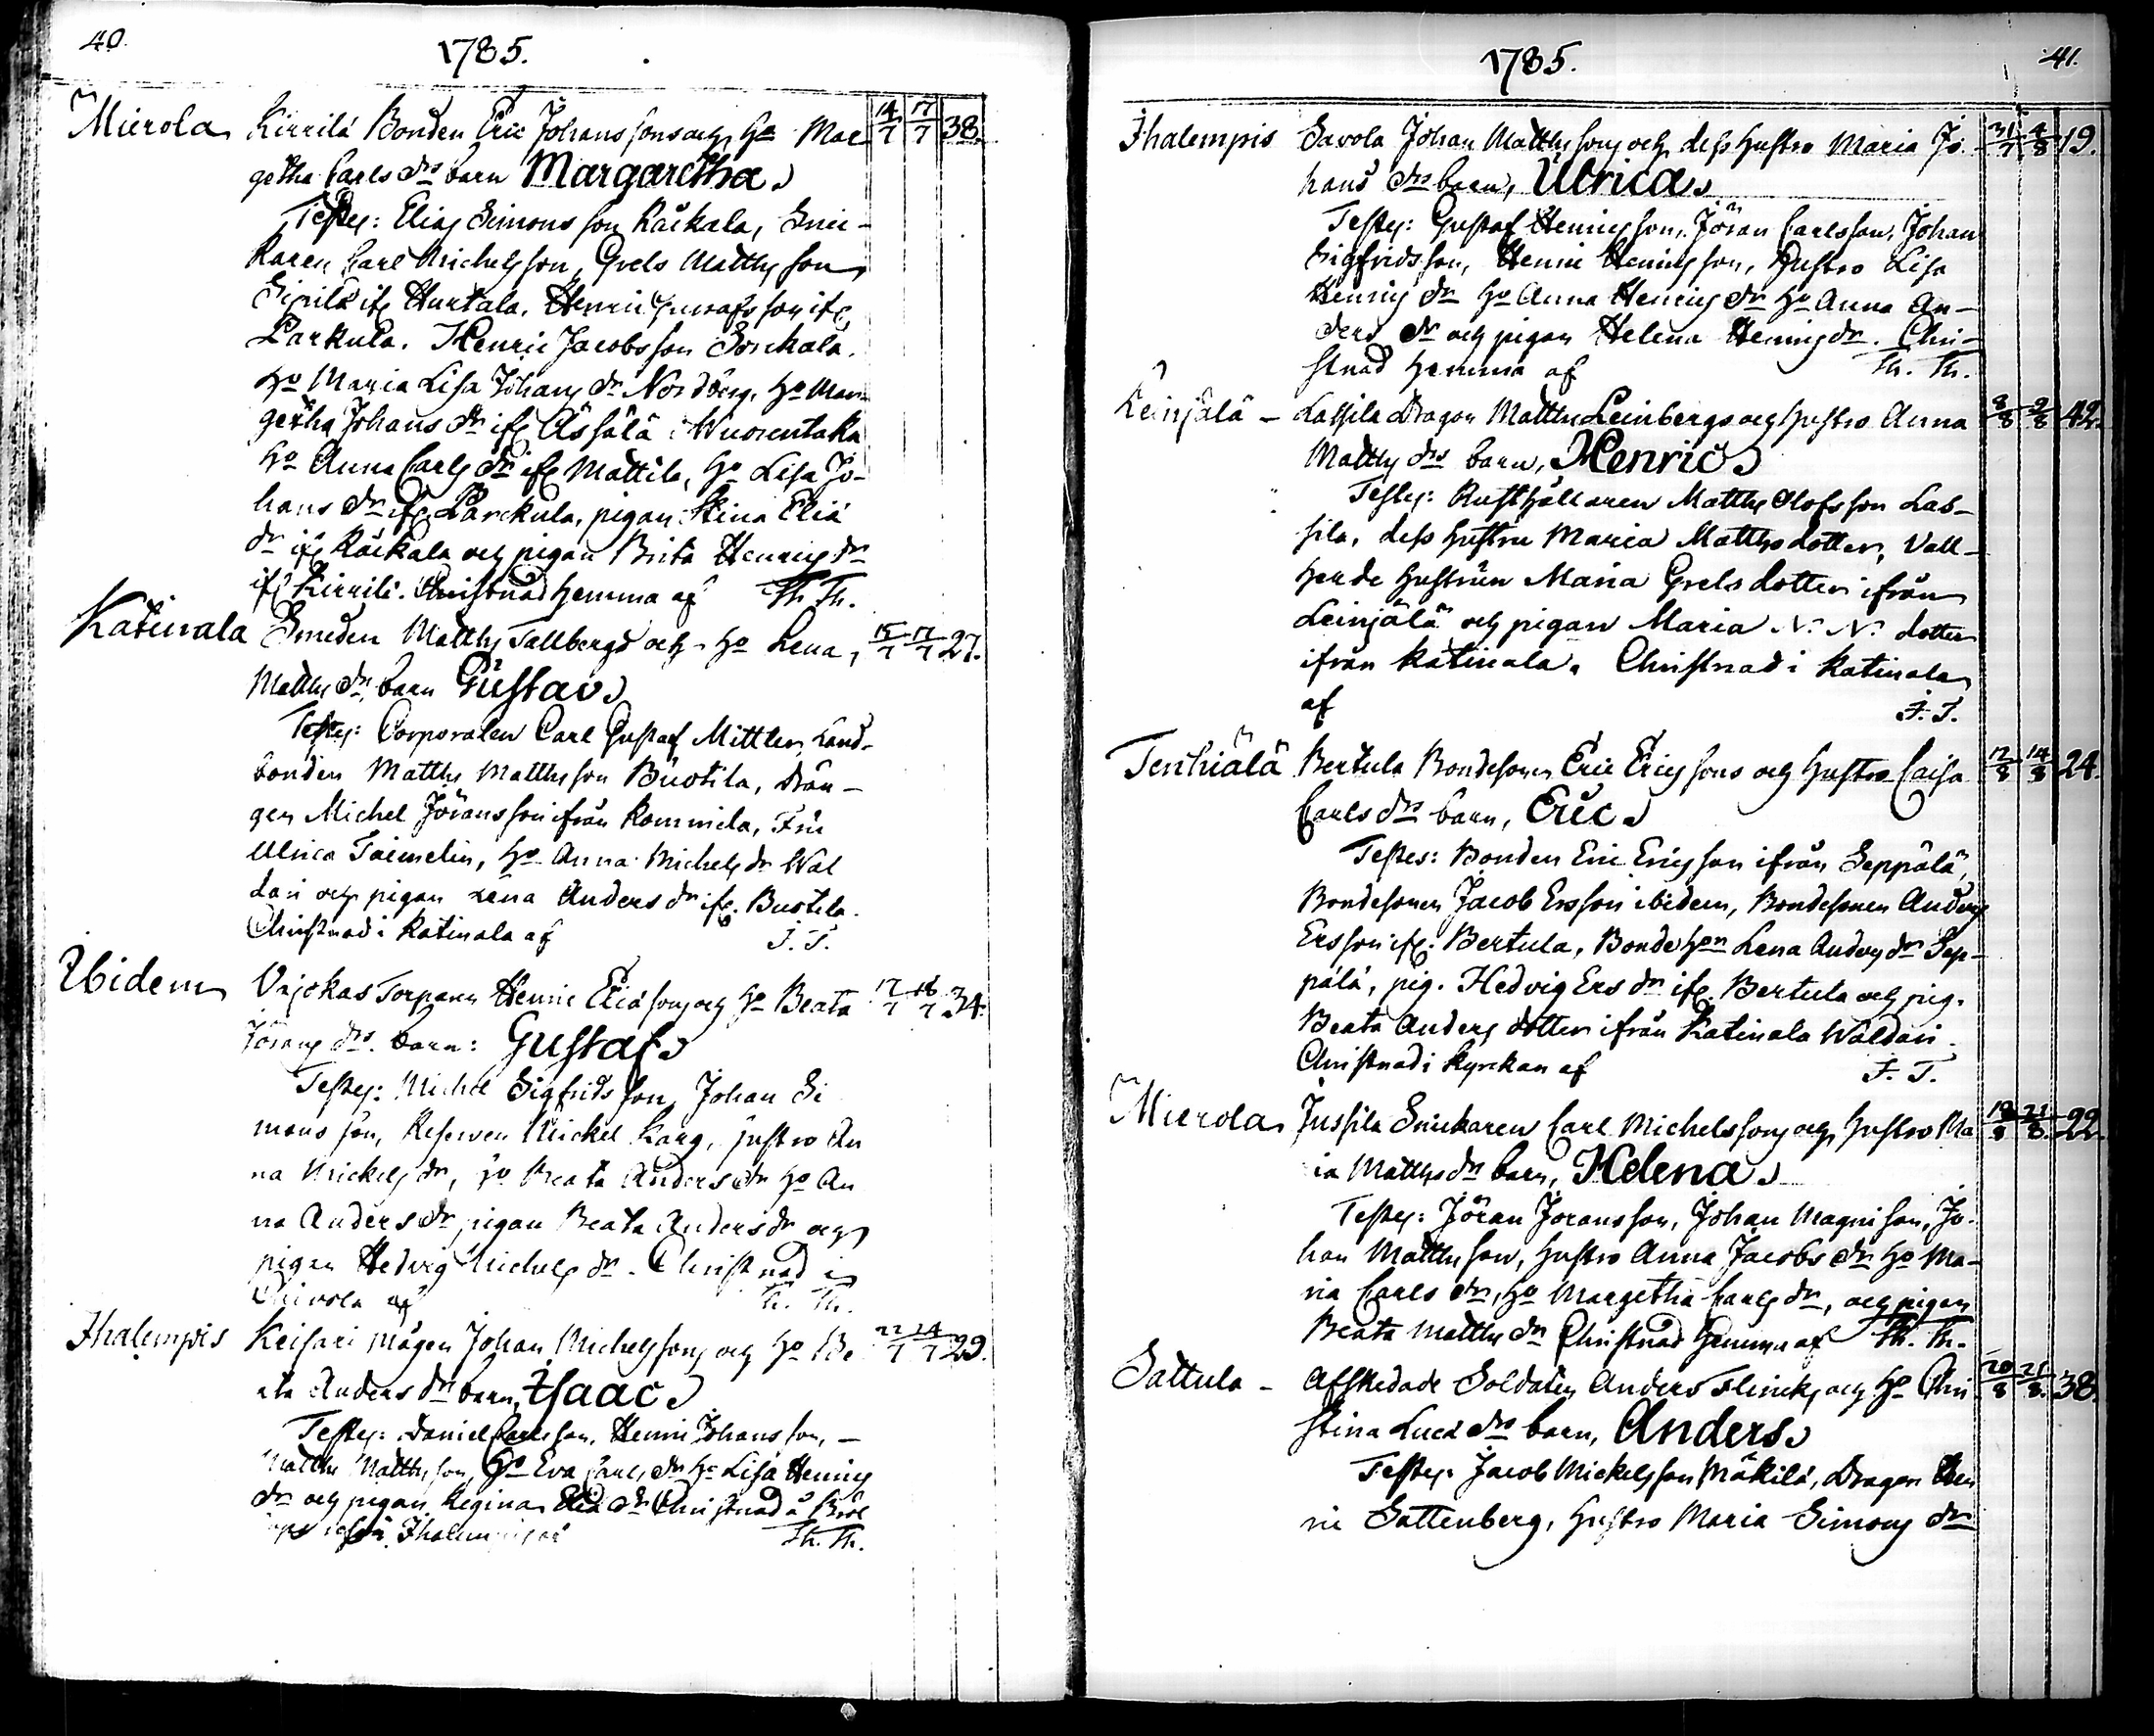 40.
1785.
Mierola Kirrilä Bonden Eric Johanssons och Ho Mar- 14/7 17/7 38.
getha Carls drs barn Margaretha.
Testes: Elias Simonsson Räikala, Snic-
karen Carl Michelsson, Grels Matthsson
Sipilä ifr. Hurtala, Henric ifr.
Parkula. Henric Jacobsson
Ho Maria Lisa Johans dr Nordberg, Ho Mar-
getha Johans dr ifr. Ässälä i Wuorentaka
Ho Anna Carls dr ifr. Mattila, Ho Lisa Jo-
hans dr ifr. Parckula, pigan Stina Eliæ
dr ifr. Räikala och pigan Brita Henrics dr
ifr. Kirrilä. Christnad hemma af Th. Th.
Katinala Smeden Matths Tallbergs och Ho Lena 15/7 17/7 27.
Matths drs barn Gustav.
Testes: Corporalen Carl Gustaf Mittler, Land-
bonden Matths Matthsson Buotila, drän-
gen Michel Jöransson ifrån Rommila, Fru
Ulrica Taimelin, Ho Anna Michels dr Wäl
dari och pigan Lena Anders dr ifr. Buotila.
Christnad i Katinala af J. T.
Ibidem Torparen Henric Eliæsons och Ho Beata 17/7 18/7 34.
Jörans drs. barn: Gustaf.
Testes: Michel Sigfridsson, Johan Si
monsson, Reserven Mickel Karg, hustro An
na Mickels dr, Ho Beata Anders dr Ho An
na Anders dr, pigan Beata Anders dr och
pigan Hedvig Michels dr. Christnad i
af Th. Th.
Ihalempis Keisari mågen Johan Michelssons och Ho Be 22/7 24/7 29.
ata Anders drs barn, Isaac.
Testes: Daniel Carlsson, Henric Johansson, –
Matths Matthsson, Ho Eva Carls dr Ho Lisa Henrics
dr och pigan Regina Eliæ dr Christnad å Bröl
Th. Th.
41.
1785.
Ihalempis Savola Johan Matthssons och dess hustro Maria Jo- 31/7 4/8 19.
hans drs barn, Ulrica.
Testes: Gustaf Henricsson, Jöran Carlsson, Johan
Sigfridsson, Henric Henricsson, Hustro Lisa
Henrics dr Ho Anna Henrics dr Ho Anna An-
ders dr och pigan Helena Henrics dr. Chri-
stnad hemma af Th. Th.
Leinjälä – Lassila Dragon Matths Leinbergs och hustro Anna 8/8 9/8 42.
Matths drs barn, Henric.
Testes: Rusthållaren Matths Olofsson Las-
sila, dess hustru Maria Matths dotter, Vall-
herde hustrun Maria Grels dotter ifrån
Leinjälä och pigan Maria N. N. dotter
ifrån Katinala. Christnad i Katinala
af J. T.
Tenhiälä Bertula Bondesonen Eric Ericssons och hustro Caisa 12/8 14/8 24.
Carls drs barn, Eric.
Testes: Bonden Eric Ericsson ifrån Seppälä,
Bondesonen Jacob Ersson ibidem, Bondesonen Anders
Ersson ifr. Bertula, Bonde hon Lena Anders dr Sep-
pälä, pig. Hedvig Ers dr ifr. Bertula och pig.
Beata Anders dotter ifrån Katinala Wäldari.
Christnad i Kyrckan af J. T.
Mierola Jussila Snickaren Carl Michelssons och hustro Ma 19/8 21/8 22.
ria Matths drs barn, Helena.
Testes: Jöran Jöransson, Johan Magnisson, Jo-
han Matthsson, hustro Anna Jacobs dr Ho Ma-
ria Carls dr, Ho Margetha Carls dr, och pigan
Beata Matths dr Christnad hemma af Th. Th.
Sattula – Afskedade Soldaten Anders Flincks och Ho Chri 20/8 21/8 38.
stina Lucæ drs barn, Anders.
Testes. Jacob Mickelsson Mäkilä, Dragon Hen
ric Sattenberg, hustro Maria Simons dr